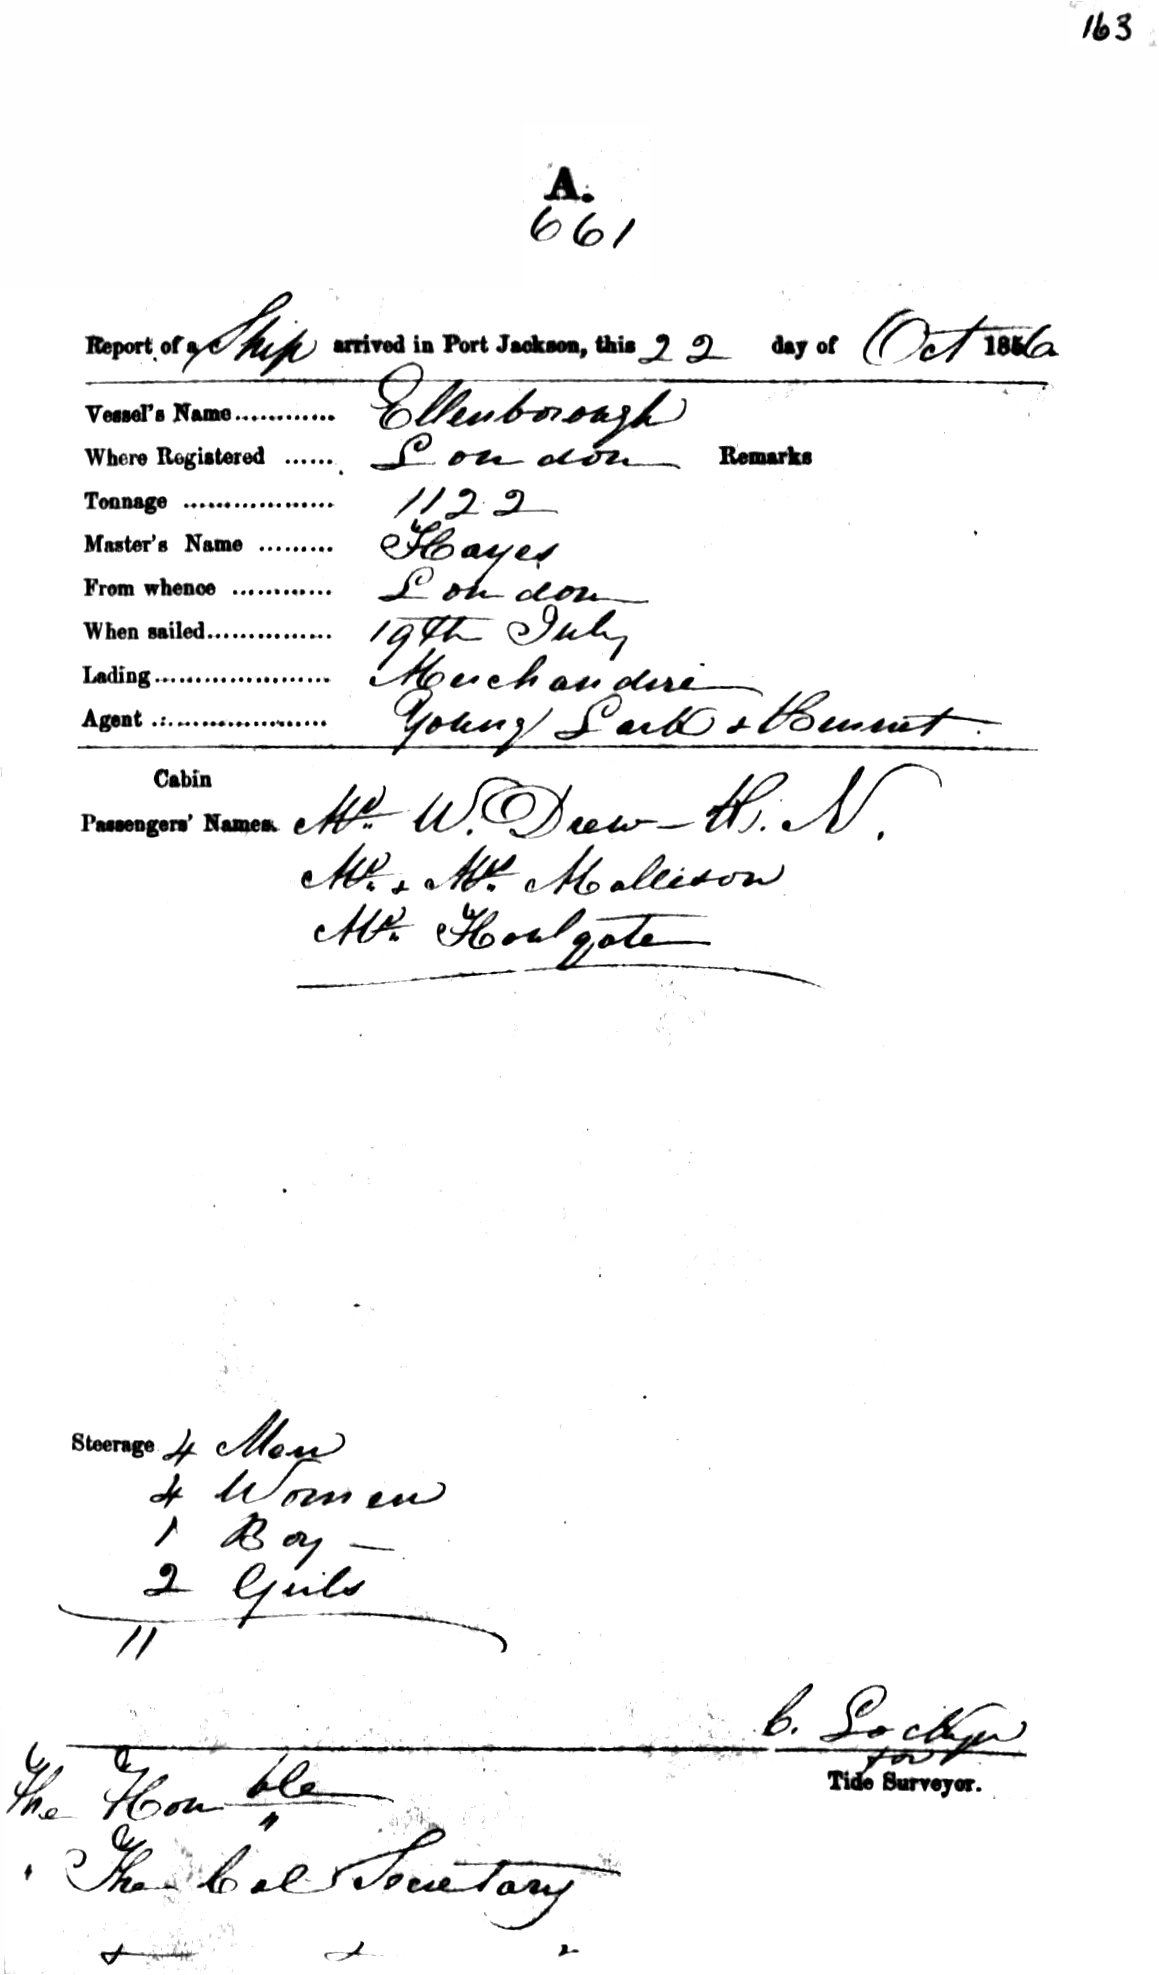 163
A.
661
Report of a Ship arrived in Port Jackson, this 22 day of Oct 1856
Vessel's Name............ Ellenborough
Where Registered ...... London Remarks
Tonnage .................. 1122
Master's Name ......... Hayes
From whence ............ London
When sailed............... 19th July
Lading..................... Merchandise
Agent ..................... Young Lark & Bennet
Cabin
Passengers' Names. Mr. W. Drew — N.
Mr. & Mrs. Mollison
Mr. Houlgate
Steerage 4 Men
4 Women
1 Boy —
2 Girls
11
C. Lockyer
for
Tide Surveyor.
The Honble
The Col Secretary